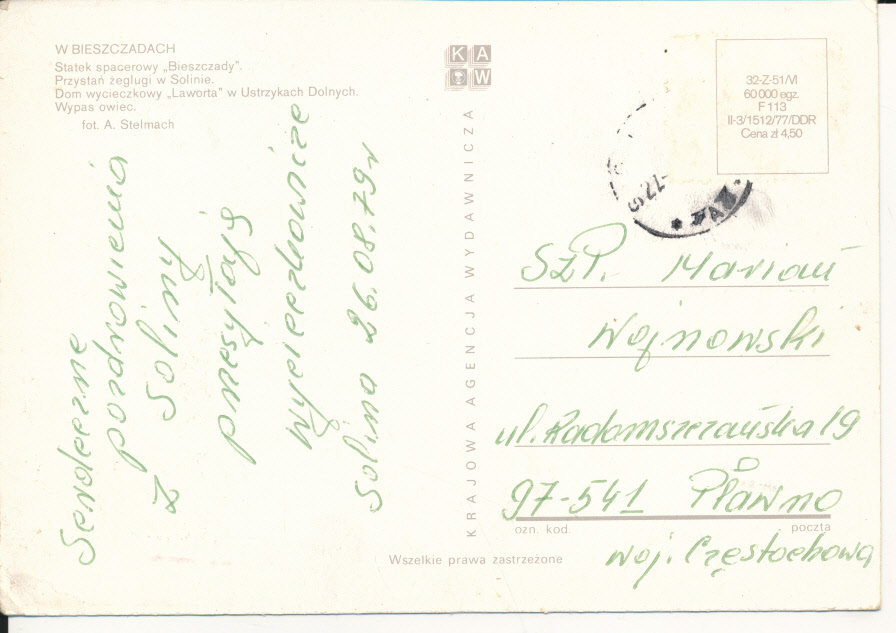 W BIESZCZADACH
Statek spacerowy „Bieszczady”.
Przystań żeglugi w Solinie.
Dom wycieczkowy „Laworta” w Ustrzykach Dolnych.
Wypas owiec.
fot. A. Stelmach
Serdeczne
pozdrowienia
z Soliny
przesyłają
Wycieczkowicze
Solina 26.08.79r
KAW
KRAJOWA AGENCJA WYDAWNICZA
32-Z-51/VI
60 000 egz.
F 113
II-3/1512/77/DDR
Cena zł 4,50
SzP. Marian
Wojnowski
ul. Radomszczańska 19
97-541 Pławno
ozn. kod. poczta
woj. Częstochowa
Wszelkie prawa zastrzeżone